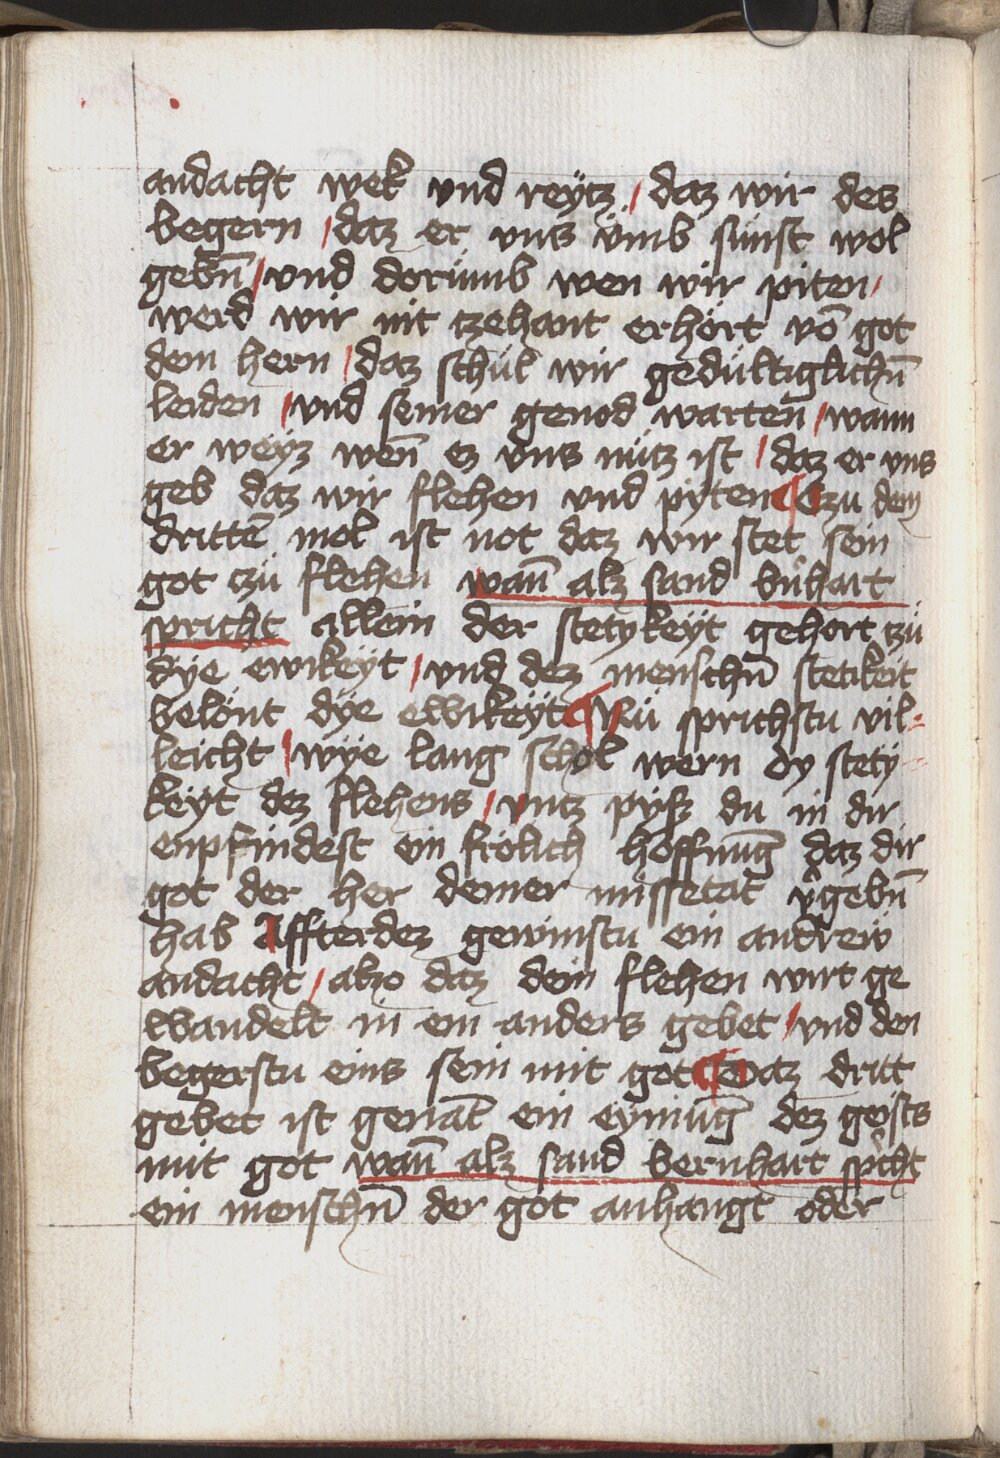 andacht wek vnd reÿtz / daz wir des
begern / daz er vns ümb sünst wol
gebn̄ / vnd dorümb wen wir piten /
werd wir nit czehant erhört vō got
dem hern / daz schül wir gedültiglichn̄
leiden / vnd seiner genod warten / wann
er weÿz wen̄ ez vns nütz ist / daz er vns
geb daz wir flehen vnd pÿten ¶ Czu dem
dritten̄ mol ist not daz wir stet sein
got czü flehen wan̄ alz sand bn̄hart
spricht allein der stetykeÿt gehort czü
dÿe ewikeÿt / vnd dez menschn̄ stetikeit
belönt dÿe ewikeÿt ¶ Nü sprichstu vil-
leicht / wÿe lang schol wern dy stety
keÿt dez flehens / vntz pÿsz du in dir
enpfindest ein frölich hoffnūg daz dir
got der her deiner missetat v̾gebn̄
hab Affterdez gewinstu ein andrew
andacht / alzo daz dein flehen wirt ge
wandelt in ein anders gebet / vnd den
begerstu eins sein mit got ¶ Daz dritt
gebet ist genāt ein eÿnūg dez geists
mit got wan̄ alz sand bernhart sp̾icht
ein menschn̄ der got anhangt oder